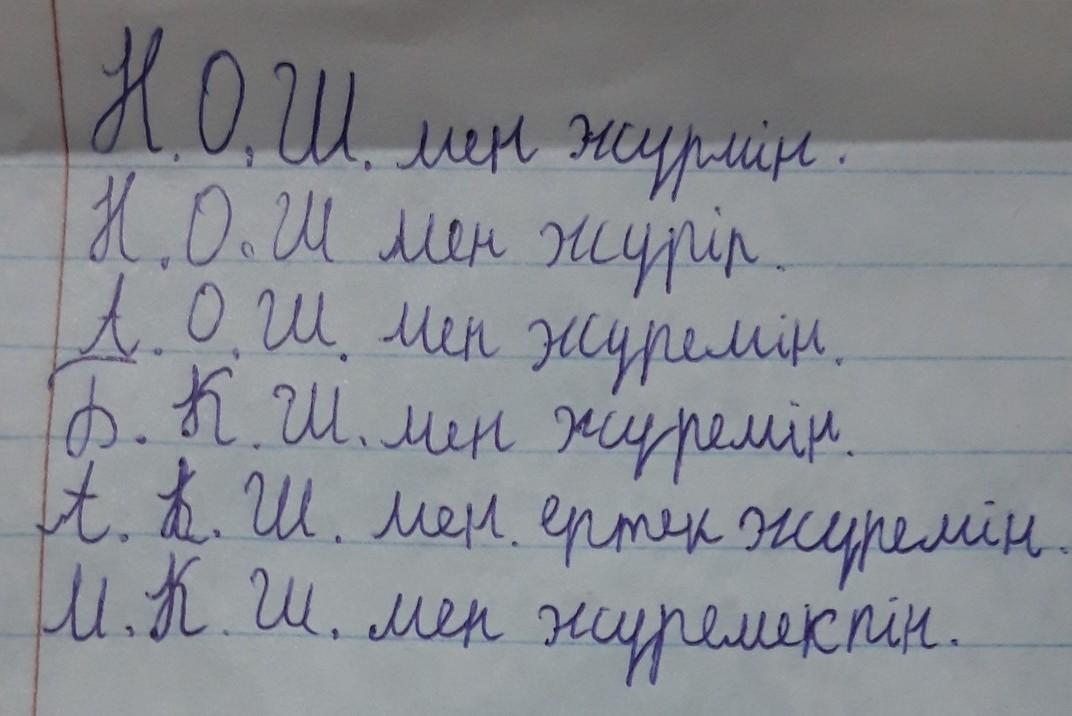 Н.О.Ш. мен журмін.
Н.О.Ш мен журіп.
А.О.Ш. мен журемін.
Б.К.Ш. мен журемін.
А.К.Ш. мен. ертек журемін.
М.К.Ш. мен журемекпін.